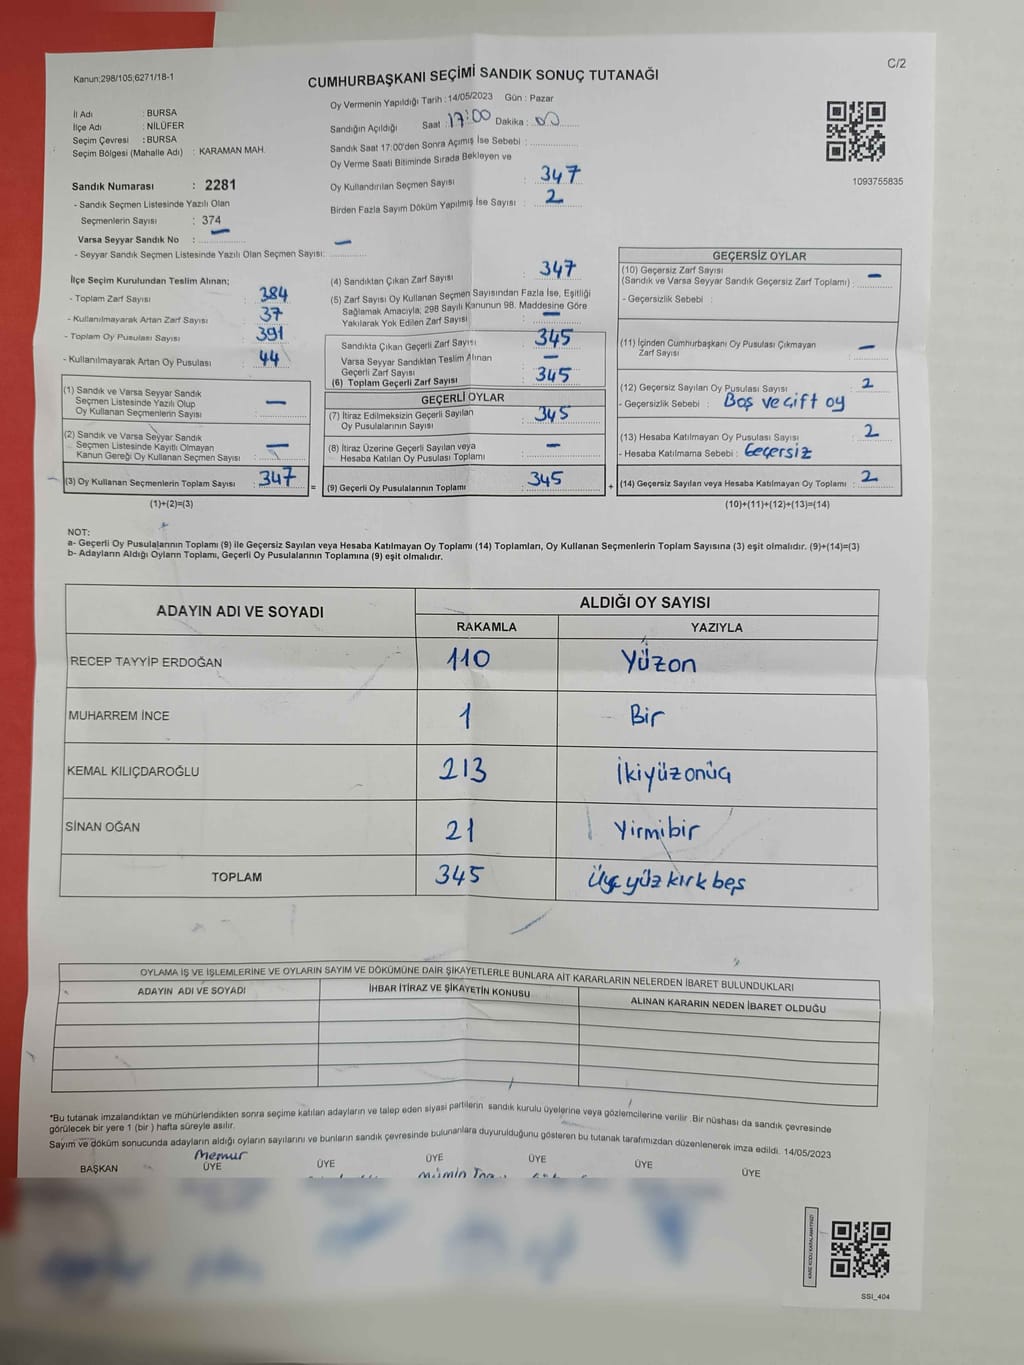 Kanun;298/105;6271/18-1
C/2
CUMHURBAŞKANI SEÇİMİ SANDIK SONUÇ TUTANAĞI
İl Adı : BURSA
İlçe Adı : NİLÜFER
Seçim Çevresi : BURSA
Seçim Bölgesi (Mahalle Adı) : KARAMAN MAH.
Sandık Numarası : 2281
- Sandık Seçmen Listesinde Yazılı Olan
Seçmenlerin Sayısı : 374
Varsa Seyyar Sandık No : –
- Seyyar Sandık Seçmen Listesinde Yazılı Olan Seçmen Sayısı: –
Oy Vermenin Yapıldığı Tarih : 14/05/2023 Gün : Pazar
Sandığın Açıldığı Saat : 17:00 Dakika : 00
Sandık Saat 17:00'den Sonra Açımış İse Sebebi :
Oy Verme Saati Bitiminde Sırada Bekleyen ve
Oy Kullandırılan Seçmen Sayısı : 347
Birden Fazla Sayım Döküm Yapılmış İse Sayısı : 2
1093755835
İlçe Seçim Kurulundan Teslim Alınan;
- Toplam Zarf Sayısı : 384
- Kullanılmayarak Artan Zarf Sayısı : 37
- Toplam Oy Pusulası Sayısı : 391
- Kullanılmayarak Artan Oy Pusulası : 44
(1) Sandık ve Varsa Seyyar Sandık
Seçmen Listesinde Yazılı Olup
Oy Kullanan Seçmenlerin Sayısı : –
(2) Sandık ve Varsa Seyyar Sandık
Seçmen Listesinde Kayıtlı Olmayan
Kanun Gereği Oy Kullanan Seçmen Sayısı : –
(3) Oy Kullanan Seçmenlerin Toplam Sayısı : 347
(1)+(2)=(3)
(4) Sandıktan Çıkan Zarf Sayısı : 347
(5) Zarf Sayısı Oy Kullanan Seçmen Sayısından Fazla İse, Eşitliği
Sağlamak Amacıyla; 298 Sayılı Kanunun 98. Maddesine Göre
Yakılarak Yok Edilen Zarf Sayısı : –
Sandıkta Çıkan Geçerli Zarf Sayısı : 345
Varsa Seyyar Sandıktan Teslim Alınan
Geçerli Zarf Sayısı : –
(6) Toplam Geçerli Zarf Sayısı : 345
GEÇERLİ OYLAR
(7) İtiraz Edilmeksizin Geçerli Sayılan
Oy Pusulalarının Sayısı : 345
(8) İtiraz Üzerine Geçerli Sayılan veya
Hesaba Katılan Oy Pusulası Toplamı : –
= (9) Geçerli Oy Pusulalarının Toplamı : 345
GEÇERSİZ OYLAR
(10) Geçersiz Zarf Sayısı
(Sandık ve Varsa Seyyar Sandık Geçersiz Zarf Toplamı) : –
- Geçersizlik Sebebi :
(11) İçinden Cumhurbaşkanı Oy Pusulası Çıkmayan
Zarf Sayısı : –
(12) Geçersiz Sayılan Oy Pusulası Sayısı : 2
- Geçersizlik Sebebi : Boş ve çift oy
(13) Hesaba Katılmayan Oy Pusulası Sayısı : 2
- Hesaba Katılmama Sebebi : Geçersiz
+ (14) Geçersiz Sayılan veya Hesaba Katılmayan Oy Toplamı : 2
(10)+(11)+(12)+(13)=(14)
NOT:
a- Geçerli Oy Pusulalarının Toplamı (9) ile Geçersiz Sayılan veya Hesaba Katılmayan Oy Toplamı (14) Toplamları, Oy Kullanan Seçmenlerin Toplam Sayısına (3) eşit olmalıdır. (9)+(14)=(3)
b- Adayların Aldığı Oyların Toplamı, Geçerli Oy Pusulalarının Toplamına (9) eşit olmalıdır.
ADAYIN ADI VE SOYADI ALDIĞI OY SAYISI
RAKAMLA YAZIYLA
RECEP TAYYİP ERDOĞAN 110 Yüzon
MUHARREM İNCE 1 Bir
KEMAL KILIÇDAROĞLU 213 İkiyüzonüç
SİNAN OĞAN 21 Yirmibir
TOPLAM 345 Üç yüz kırk beş
OYLAMA İŞ VE İŞLEMLERİNE VE OYLARIN SAYIM VE DÖKÜMÜNE DAİR ŞİKAYETLERLE BUNLARA AİT KARARLARIN NELERDEN İBARET BULUNDUKLARI
ADAYIN ADI VE SOYADI İHBAR İTİRAZ VE ŞİKAYETİN KONUSU ALINAN KARARIN NEDEN İBARET OLDUĞU
*Bu tutanak imzalandıktan ve mühürlendikten sonra seçime katılan adayların ve talep eden siyasi partilerin sandık kurulu üyelerine veya gözlemcilerine verilir .Bir nüshası da sandık çevresinde
görülecek bir yere 1 (bir ) hafta süreyle asılır.
Sayım ve döküm sonucunda adayların aldığı oyların sayılarını ve bunların sandık çevresinde bulunanlara duyurulduğunu gösteren bu tutanak tarafımızdan düzenlenerek imza edildi. 14/05/2023
Memur
BAŞKAN ÜYE ÜYE ÜYE ÜYE ÜYE ÜYE
SSİ_404